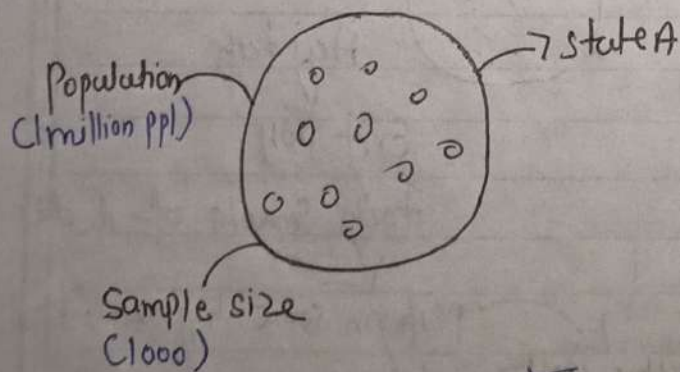 Population
(1 million ppl)
→ state A
Sample size
(1000)